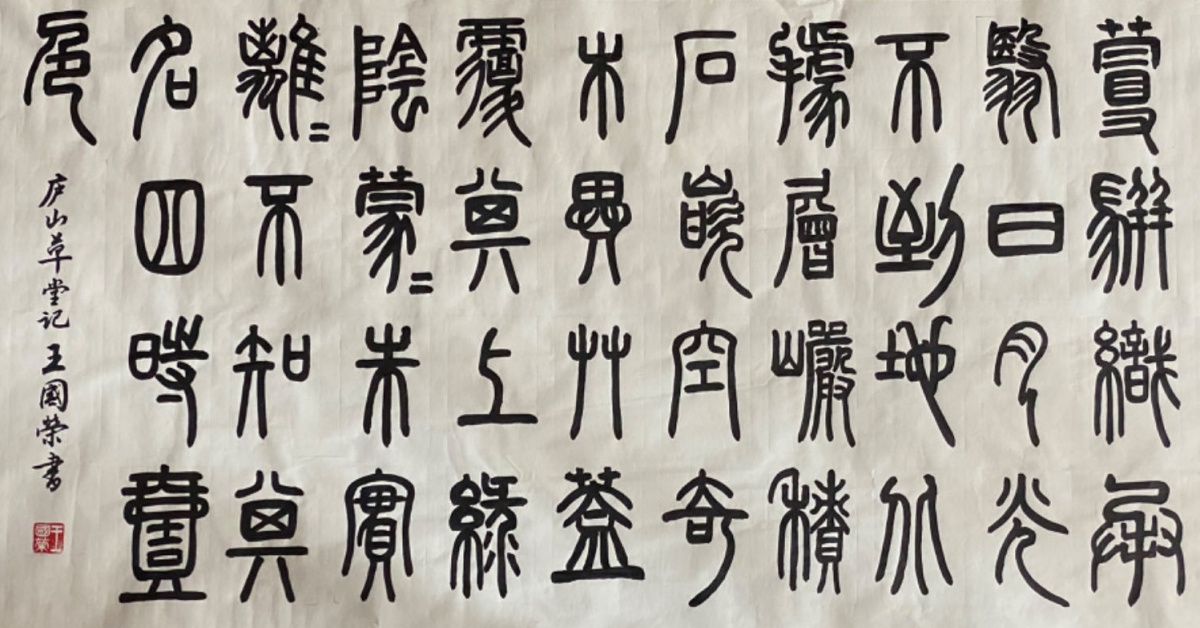 蔓駢織承
翳日月光
不到地北
據層巖積
石嵌空奇
木異艸蓋
覆其上綠
陰蒙〻朱實
離〻不知其
名四時壹
色
庐山草堂记 王國榮書
王國榮